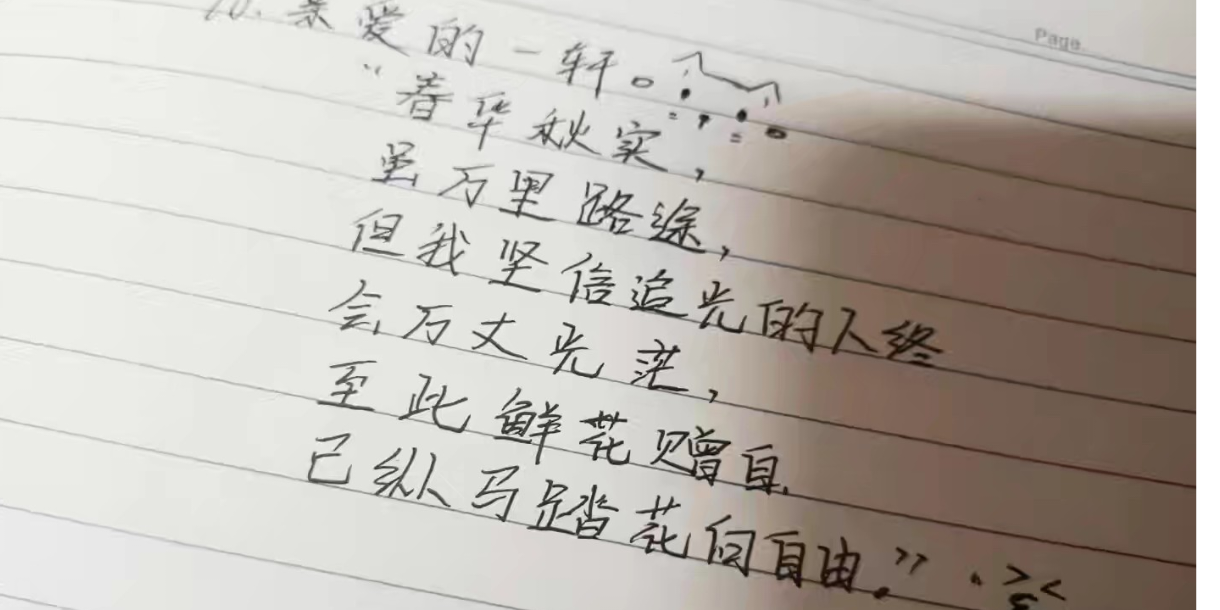 Page
10. 亲爱的一轩。
“春华秋实,
虽万里路途,
但我坚信追光的人终
会万丈光茫,
至此鲜花赠自
己纵马踏花向自由.”